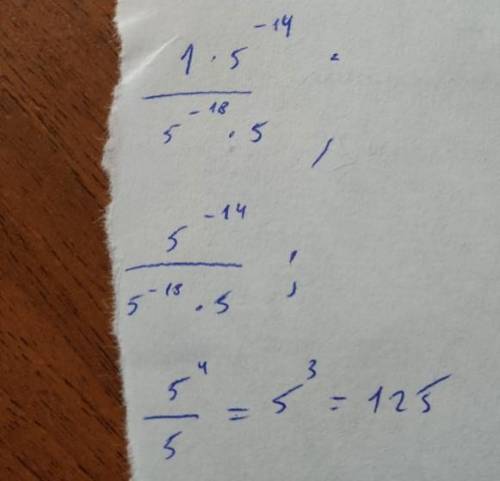 1 · 5^-14
5^-18 · 5 ;
5^-14
5^-18 · 5 ;
5^4
5 = 5^3 = 125